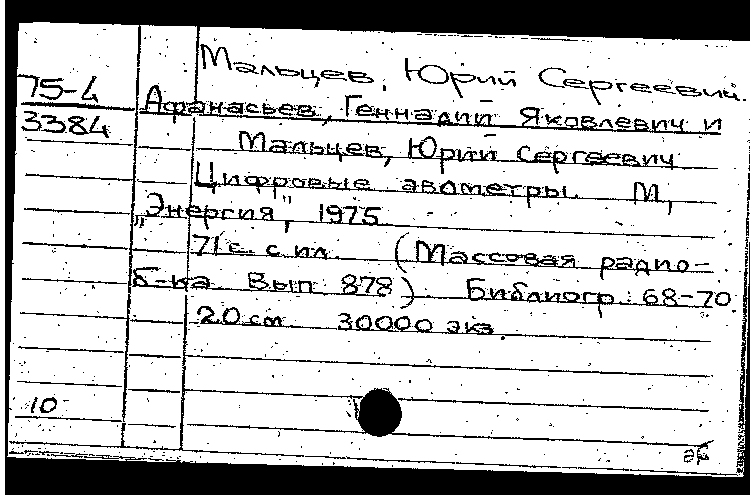 Мальцев, Юрий Сергеевич.
75-4
3384
Афанасьев, Геннадий Яковлевич и
Мальцев, Юрий Сергеевич
Цифровые авометры. М,
„Энергия", 1975
71 с. с ил. (Массовая радио-
б-ка. Вып 878). Библиогр.: 68-70.
20 см 30000 экз.
10